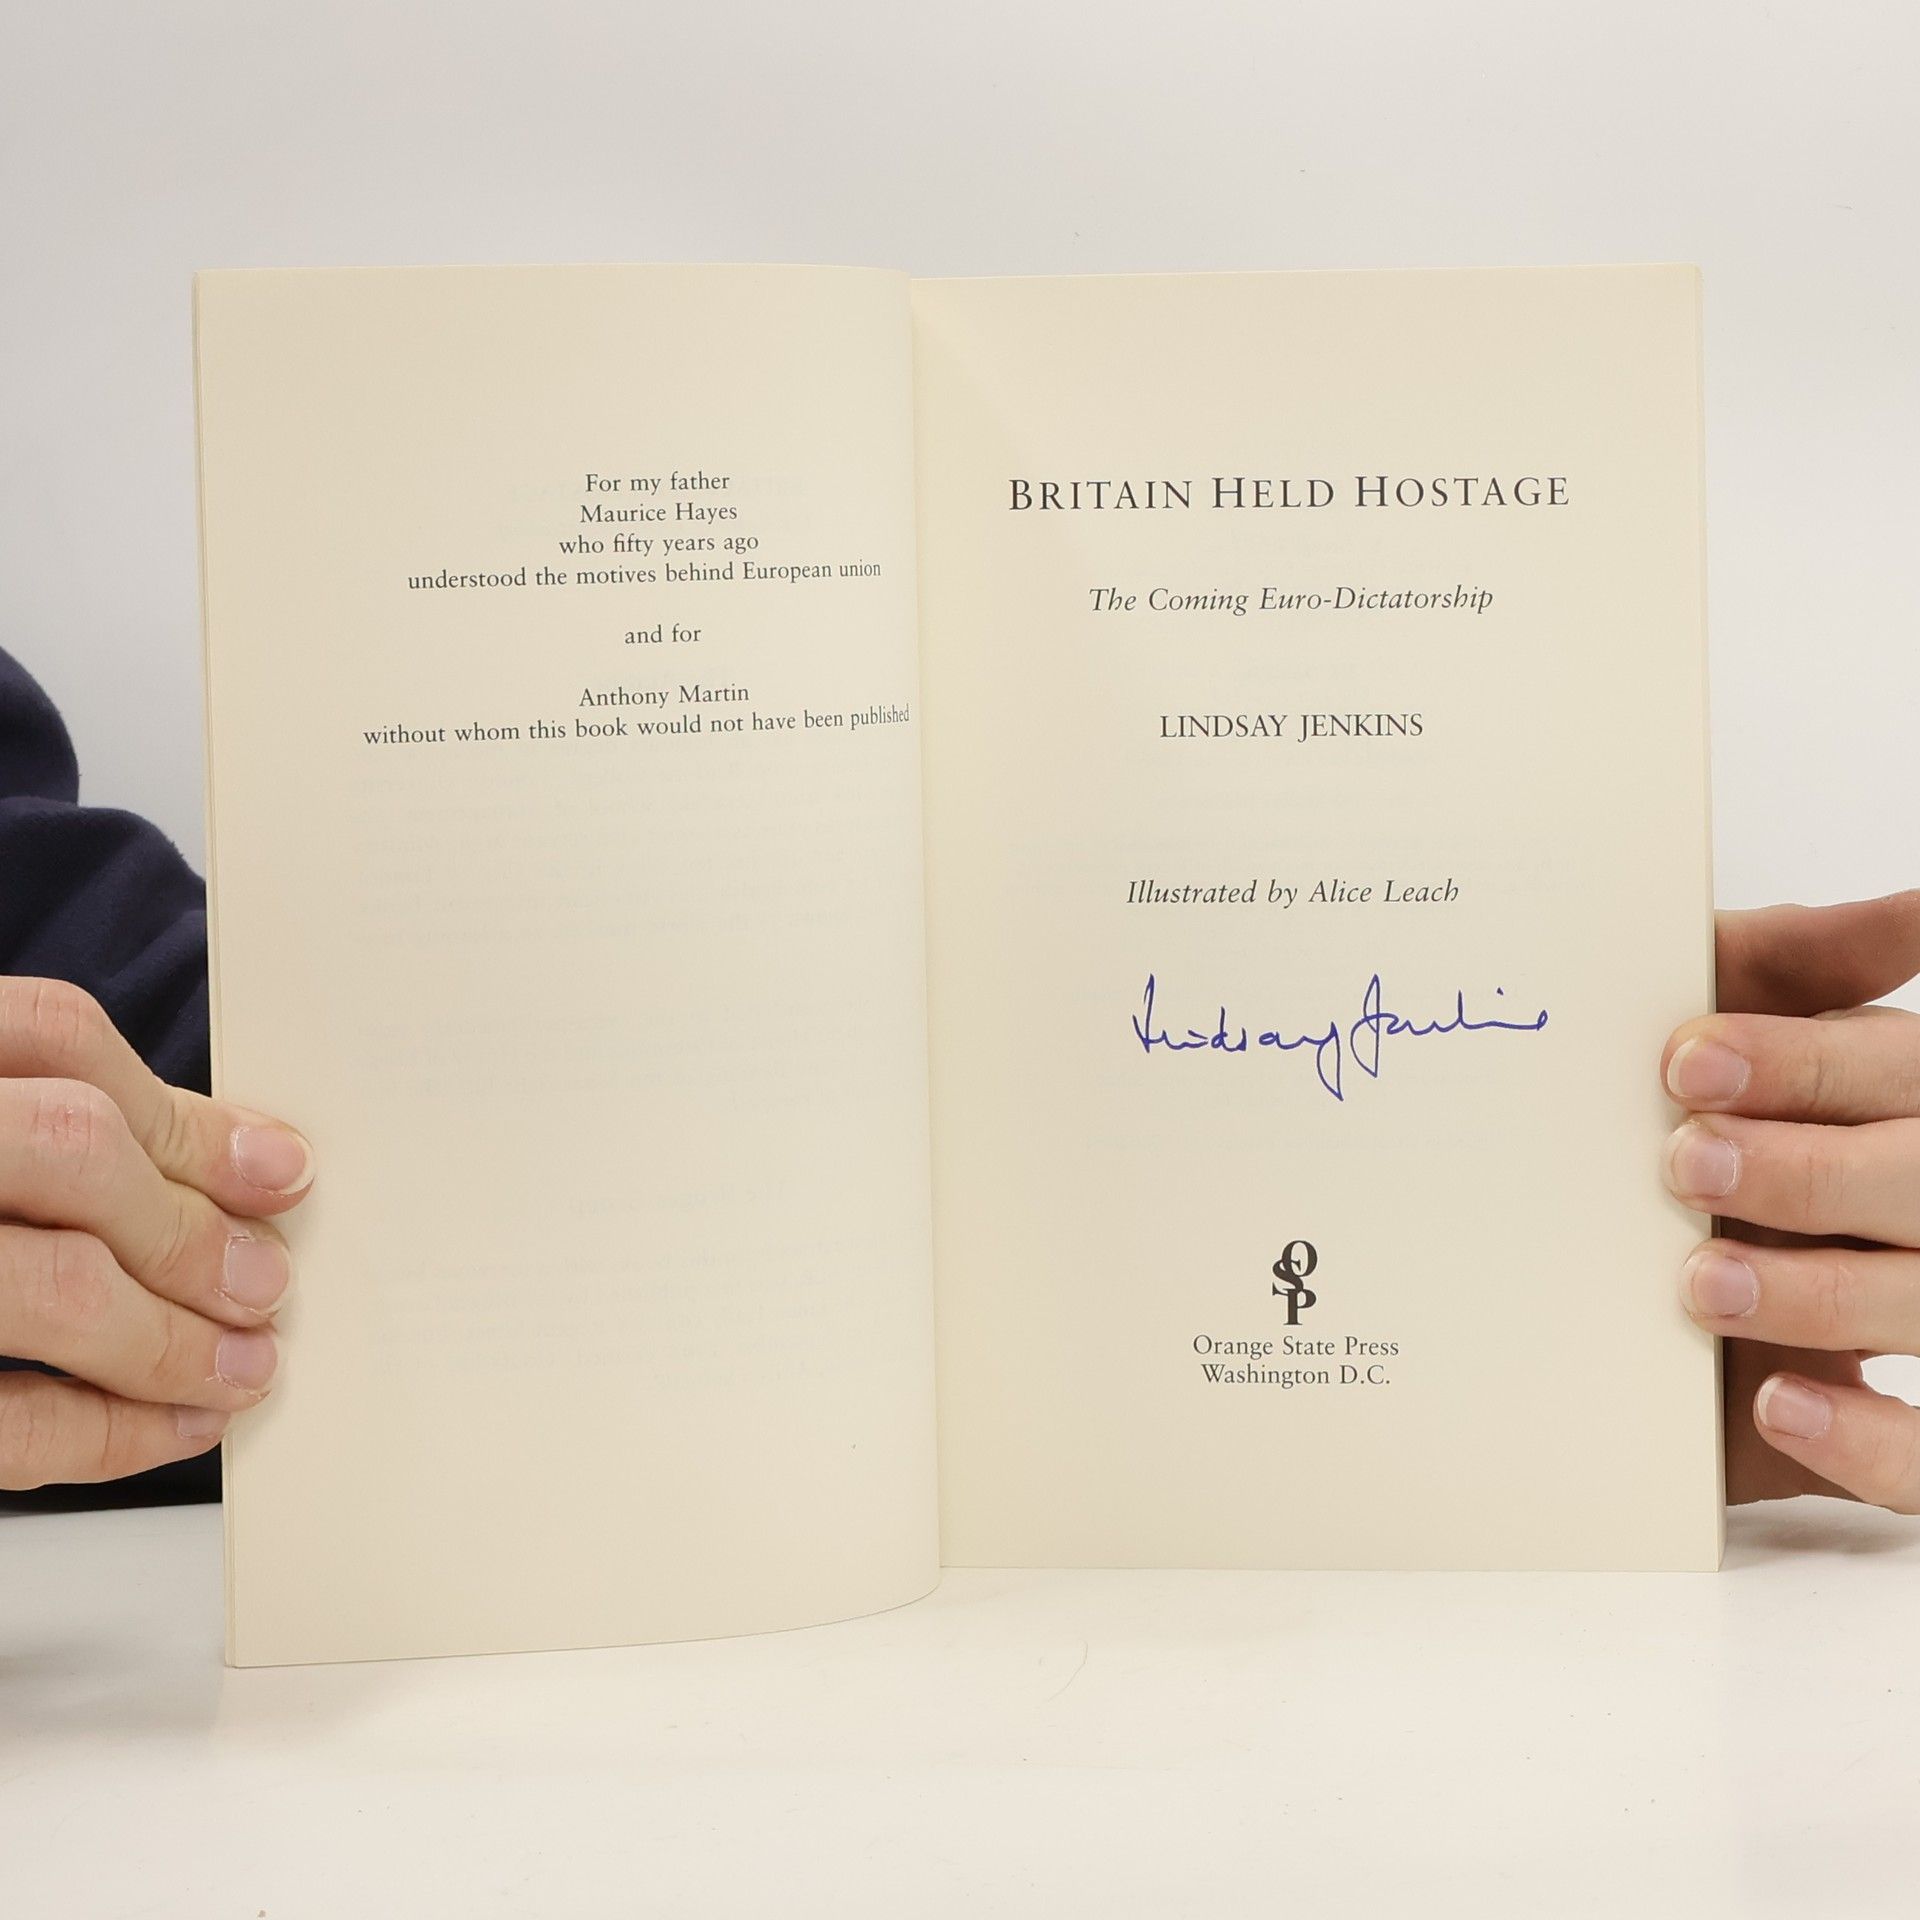 For my father
Maurice Hayes
who fifty years ago
understood the motives behind European union
and for
Anthony Martin
without whom this book would not have been published
BRITAIN HELD HOSTAGE
The Coming Euro-Dictatorship
LINDSAY JENKINS
Illustrated by Alice Leach
Lindsay Jenkins
OSP
Orange State Press
Washington D.C.